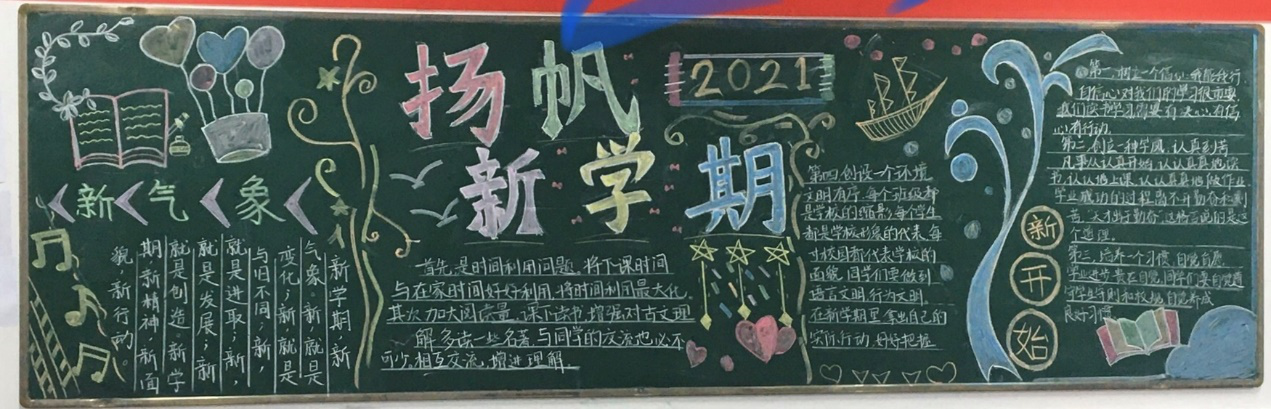 扬帆
新学期
2021
新气象
新学期新
气象。新,就是
变化;新,就是
与旧不同;新,
就是进取;新,
就是发展;新
就是创造。新学
期,新精神,新面
貌,新行动。
首先是时间利用问题。将下课时间
与在家时间好好利用,将时间利用最大化。
其次加大阅读量。课下读书,增强对古文理
解,多读一些名著,与同学的交流也必不
可少,相互交流,增进理解。
第四,创设一个环境,
文明有序。每个班级都
是学校的缩影,每个学生
都是学校形象的代表,每
面貌,同学们要做到
语言文明,行为文明。
在新学期里拿出自己的
实际行动,好好把握
新
开
始
第一,树立一个信心:我能我行。
自信心对我们的学习很重要
我们应
心,有行动。
第二,创立一种学风:认真刻苦
凡事从认真开始,认认真真地读
书,认认真真地上课,认认真真地做作业。
学业成功的过程离不开勤奋和刻
苦,“天才出于勤奋”
个道理。
第三,培养一个习惯:自觉自愿
学业进步贵在自觉,同学们要自觉遵
守学生守则和校规,自觉养成
良好习惯。